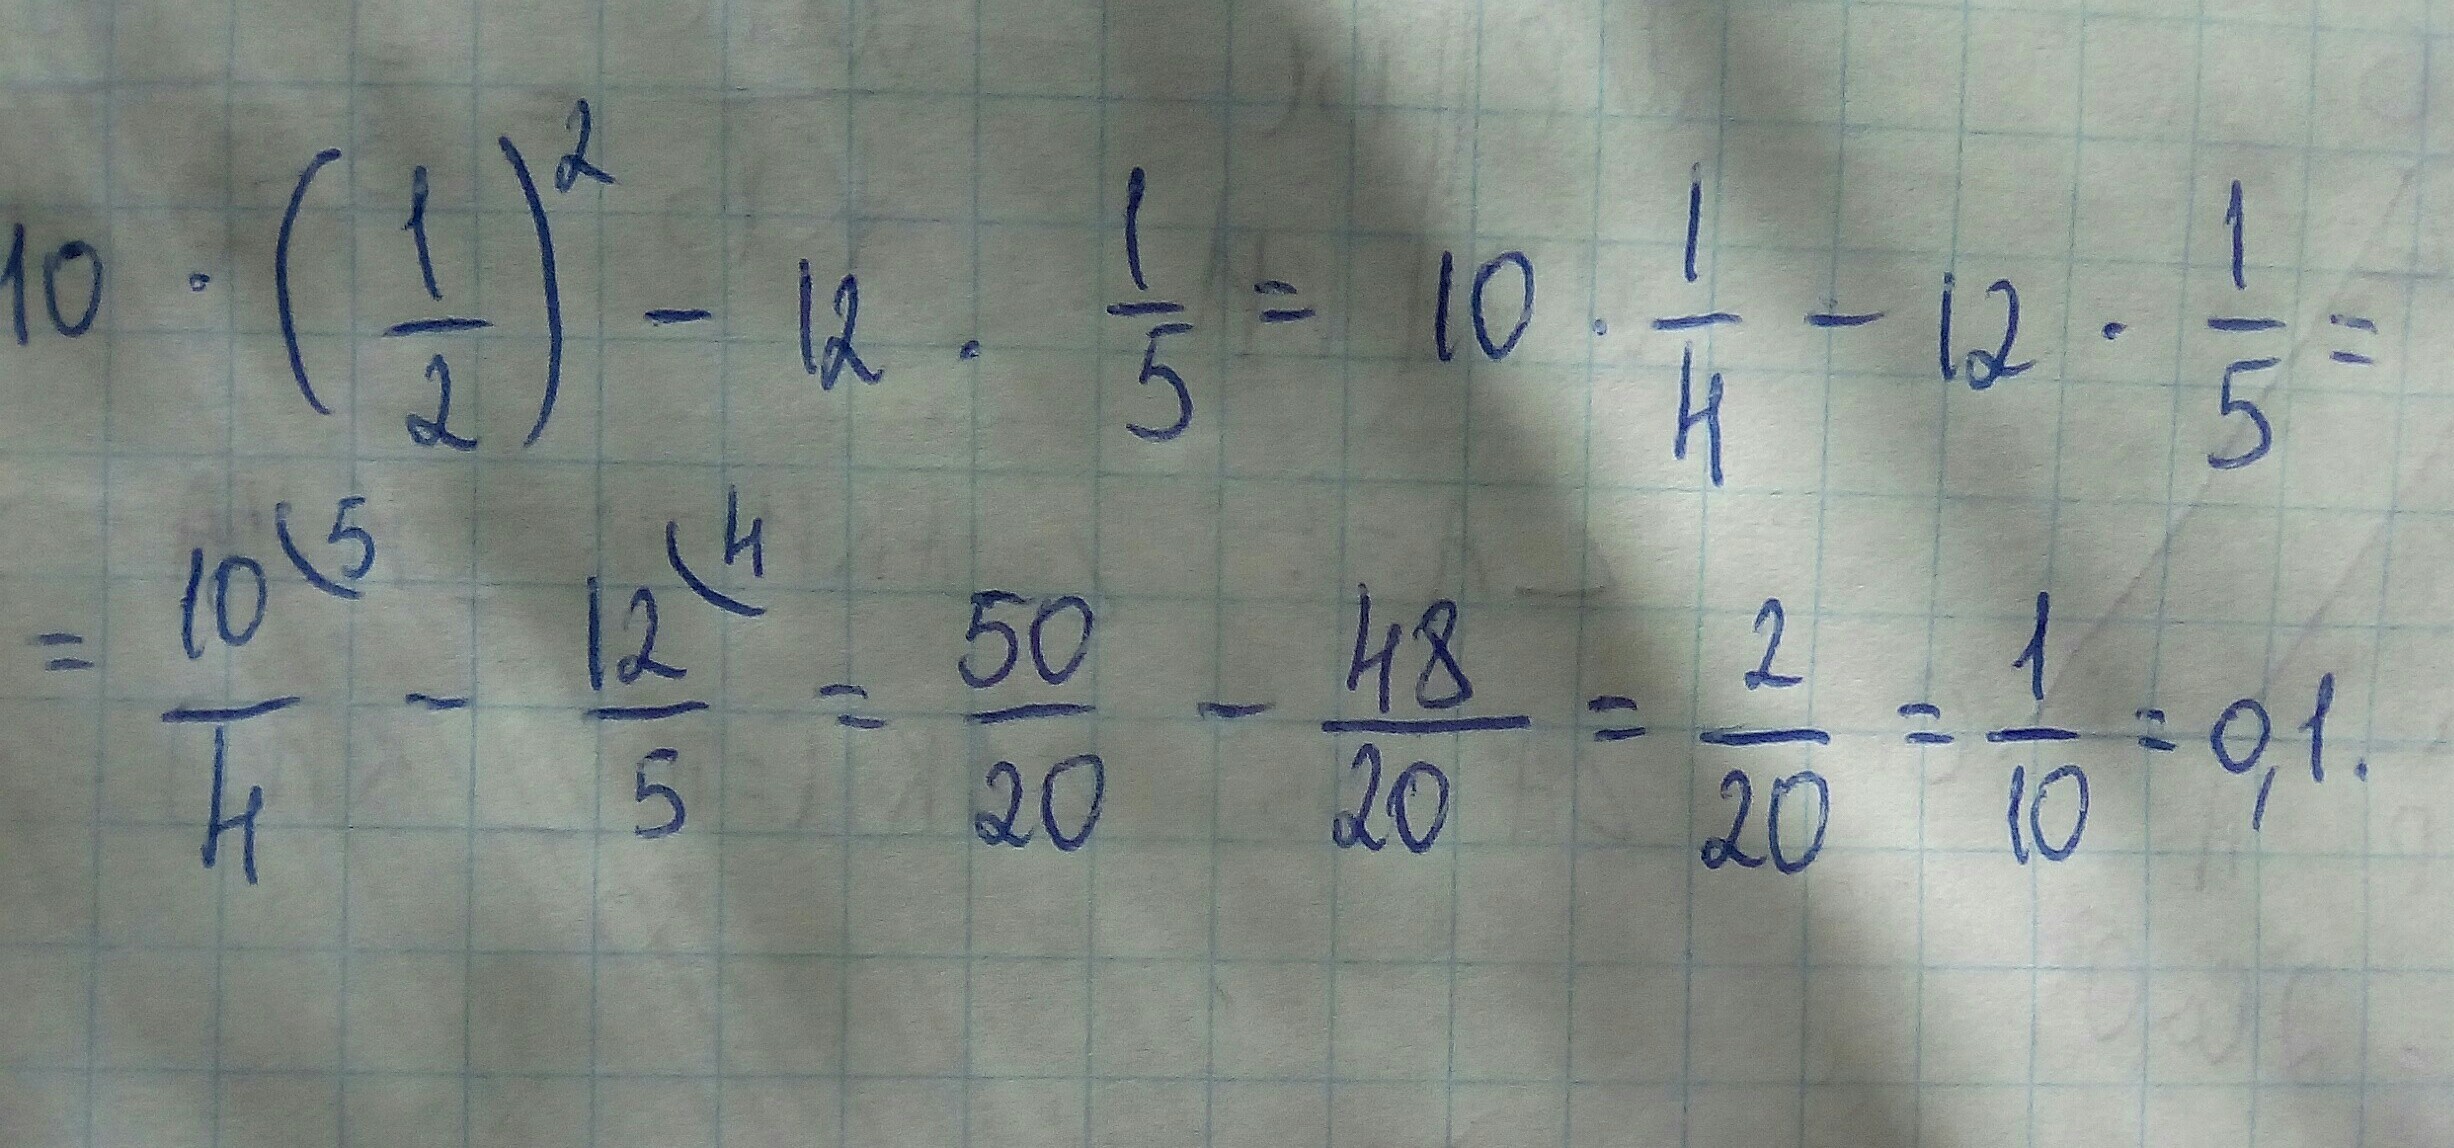 10 · (1/2)² - 12 · 1/5 = 10 · 1/4 - 12 · 1/5 =
= 10\5/4 - 12\4/5 = 50/20 - 48/20 = 2/20 = 1/10 = 0,1.